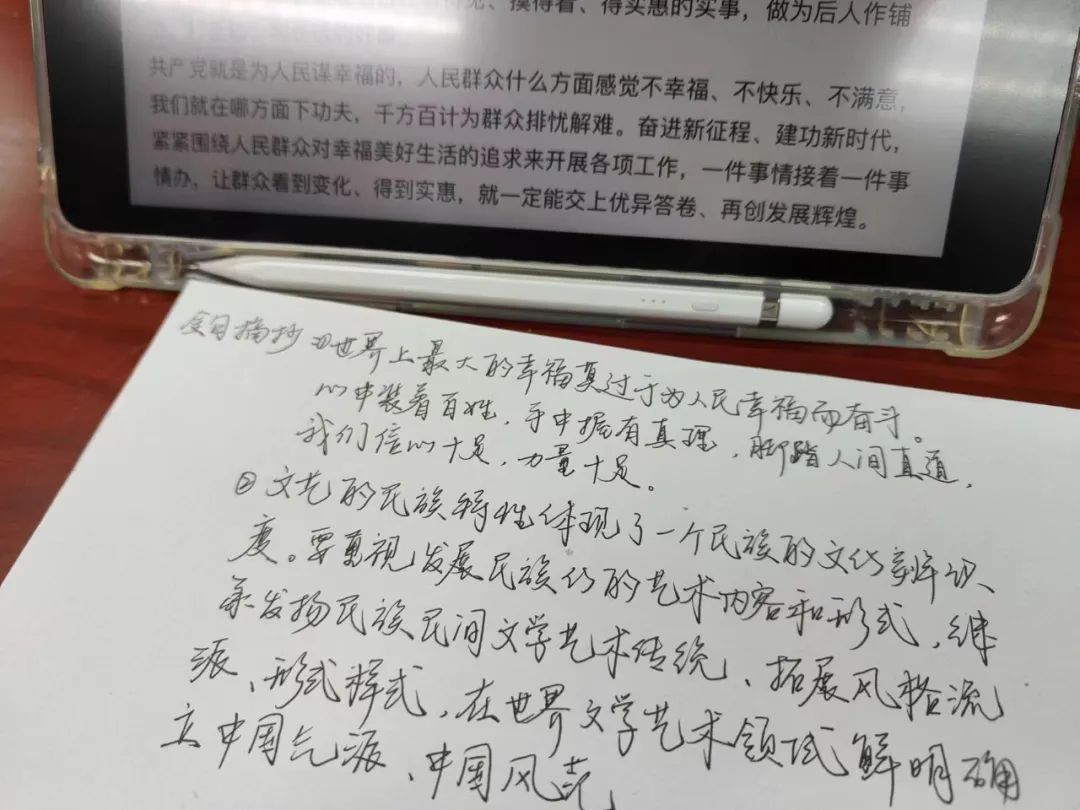 摸得着、得实惠的实事，做为后人作铺
共产党就是为人民谋幸福的，人民群众什么方面感觉不幸福、不快乐、不满意，
我们就在哪方面下功夫，千方百计为群众排忧解难。奋进新征程、建功新时代，
紧紧围绕人民群众对幸福美好生活的追求来开展各项工作，一件事情接着一件事
情办，让群众看到变化、得到实惠，就一定能交上优异答卷、再创发展辉煌。
今日摘抄 ①世界上最大的幸福莫过于为人民幸福而奋斗。
心中装着百姓，手中握有真理，脚踏人间真道，
我们信心十足，力量十足。
②文艺的民族特性体现了一个民族的文化辨识
度。要重视发展民族化的艺术内容和形式，继
承发扬民族民间文学艺术传统、拓展风格流
派、形式样式，在世界文学艺术领域鲜明确
立中国气派、中国风范